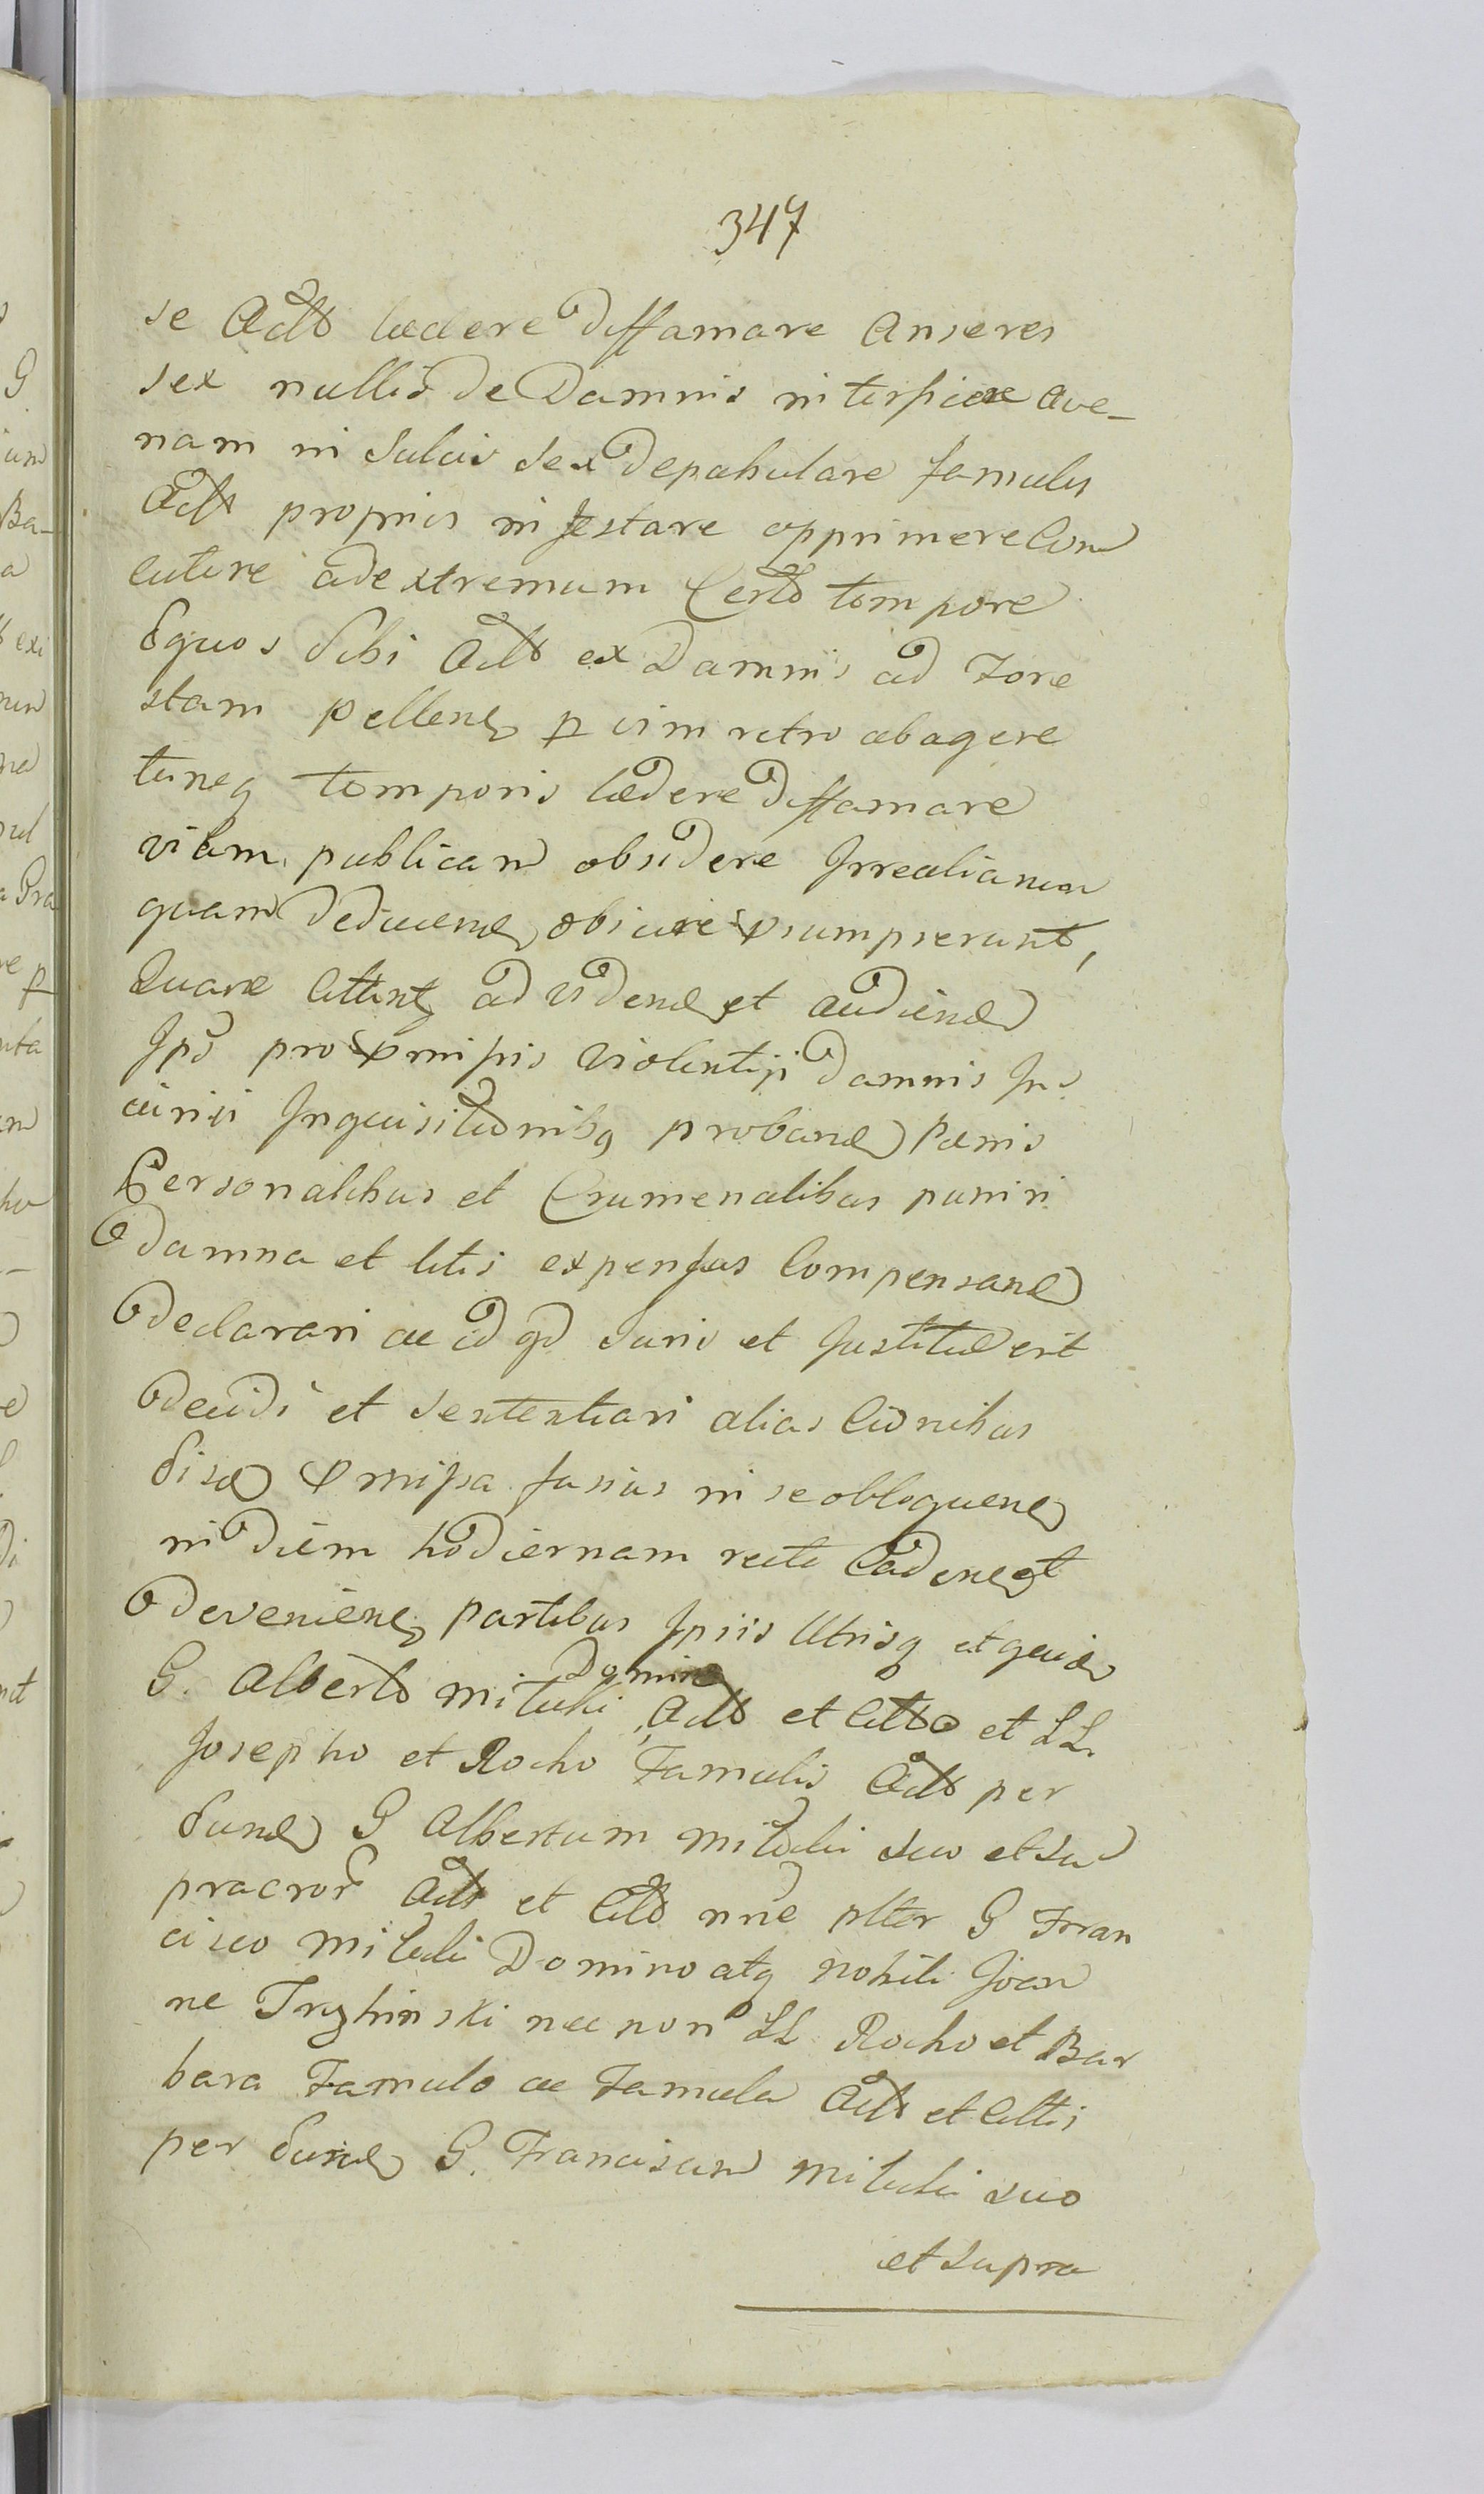 347
se Actt laedere diffamare Anseres
sex nullis de Damnis interficere Ave-
nam in Sulcis sex depabulare famulos
Actt proprios infestare opprimere Con
cutere ad extremum Certo tempore
Equos Sibi Actt ex Damnis ad Fore
stam pellen p vim retro abagere
tuneq temporis laedere diffamare
viam publicam obsidere
quam Deducend objicere psumpserunt,
Quare Cittantq ad vidend et audiend
Ipso pro pmissis violentijs damnis In
iurijs Inquisitionibq proband Paenis
Personalibus et Crumenalibus puniri
damna et litis expensas Compensand
declarari ac id qd Juris et Justitiae erit
decidi et sententiari alias Citionibus
pmissa fusius in se obloquen
in diem hodiernam recte Caden et
devenien partibus Ipsis Utrisq et quidem
G. Alberto Mituki Domino Actt et Citto et LL
Josepho et Rocho Famulis Actt per
Eund G Albertum Mituki suo et su
pracror Actt et Citto nne plter G Fran
cisco Mituki Domino atq nobili Joan
ne Trzbinski nec non LL Rocho et Bar
bara Famulo ac Famula Actt et Cittis
per Eund G. Franciscum Mituki suo
et supra